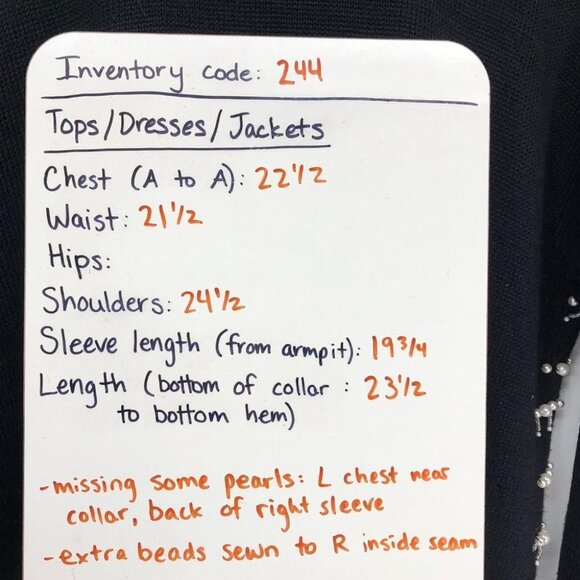 Inventory code: 244
Tops/Dresses/Jackets
Chest (A to A): 22 1/2
Waist: 21 1/2
Hips:
Shoulders: 24 1/2
Sleeve length (from armpit): 19 3/4
Length (bottom of collar : 23 1/2
to bottom hem)
-missing some pearls: L chest near
collar, back of right sleeve
-extra beads sewn to R inside seam